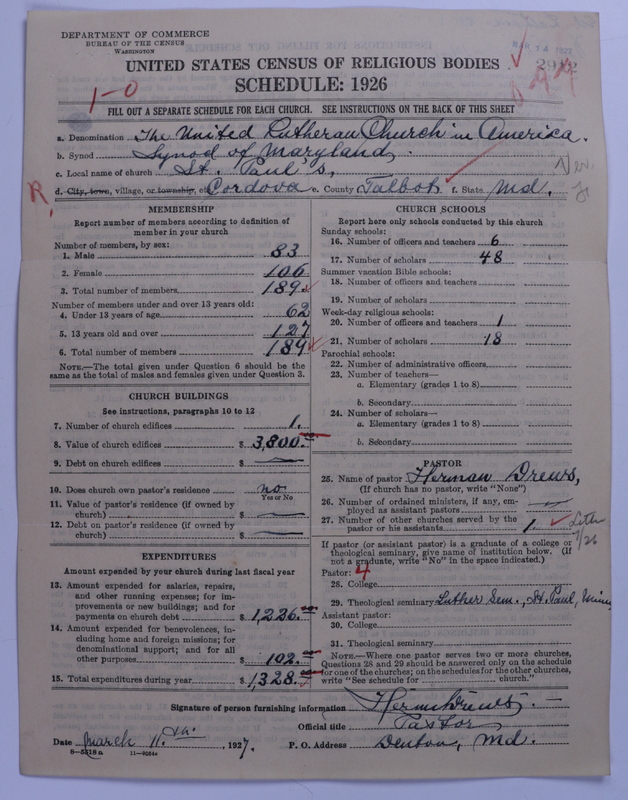 DEPARTMENT OF COMMERCE
BUREAU OF THE CENSUS
WASHINGTON
MAR 14 1927
UNITED STATES CENSUS OF RELIGIOUS BODIES
SCHEDULE: 1926
1-0
FILL OUT A SEPARATE SCHEDULE FOR EACH CHURCH. SEE INSTRUCTIONS ON THE BACK OF THIS SHEET
a. Denomination The United Lutheran Church in America.
b. Synod Synod of Maryland,
c. Local name of church St. Paul's,
R. d. City, town, village, or township, etc. Cordova e. County Talbot f. State Md.
MEMBERSHIP
Report number of members according to definition of
member in your church
Number of members, by sex:
1. Male 83
2. Female 106
3. Total number of members 189
Number of members under and over 13 years old:
4. Under 13 years of age 62
5. 13 years old and over 127
6. Total number of members 189
NOTE.—The total given under Question 6 should be
same as the total of males and females given under Question 3.
CHURCH BUILDINGS
See instructions, paragraphs 10 to 12
7. Number of church edifices 1.
8. Value of church edifices $ 3,800.
9. Debt on church edifices $
10. Does church own pastor's residence no
Yes or No
11. Value of pastor's residence (if owned by
church) $
12. Debt on pastor's residence (if owned by
church) $
EXPENDITURES
Amount expended by your church during last fiscal year
13. Amount expended for salaries, repairs,
and other running expenses; for im-
provements or new buildings; and for
payments on church debt $ 1,226.
14. Amount expended for benevolences, in-
cluding home and foreign missions; for
denominational support; and for all
other purposes $ 102.
15. Total expenditures during year $ 1,328.
CHURCH SCHOOLS
Report here only schools conducted by this church
Sunday schools:
16. Number of officers and teachers 6
17. Number of scholars 48
Summer vacation Bible schools:
18. Number of officers and teachers
19. Number of scholars
Week-day religious schools:
20. Number of officers and teachers 1
21. Number of scholars 18
Parochial schools:
22. Number of administrative officers
23. Number of teachers—
a. Elementary (grades 1 to 8)
b. Secondary
24. Number of scholars—
a. Elementary (grades 1 to 8)
b. Secondary
PASTOR
25. Name of pastor Herman Drews,
(If church has no pastor, write "None")
26. Number of ordained ministers, if any, em-
ployed as assistant pastors
27. Number of other churches served by the
pastor or his assistants 1.
If pastor (or assistant pastor) is a graduate of a college or
theological seminary, give name of institution below. (If
not a graduate, write "No" in the space indicated.)
Pastor: 4
28. College
29. Theological seminary Luther Sem., St. Paul, Minn
Assistant pastor:
30. College
31. Theological seminary
NOTE.—Where one pastor serves two or more churches,
Questions 28 and 29 should be answered only on the schedule
for one of the churches; on the schedules for the other churches,
write "See schedule for church."
Signature of person furnishing information Herman Drews.
Official title Pastor
Date March 11. th. , 1927. P. O. Address Denton, Md.